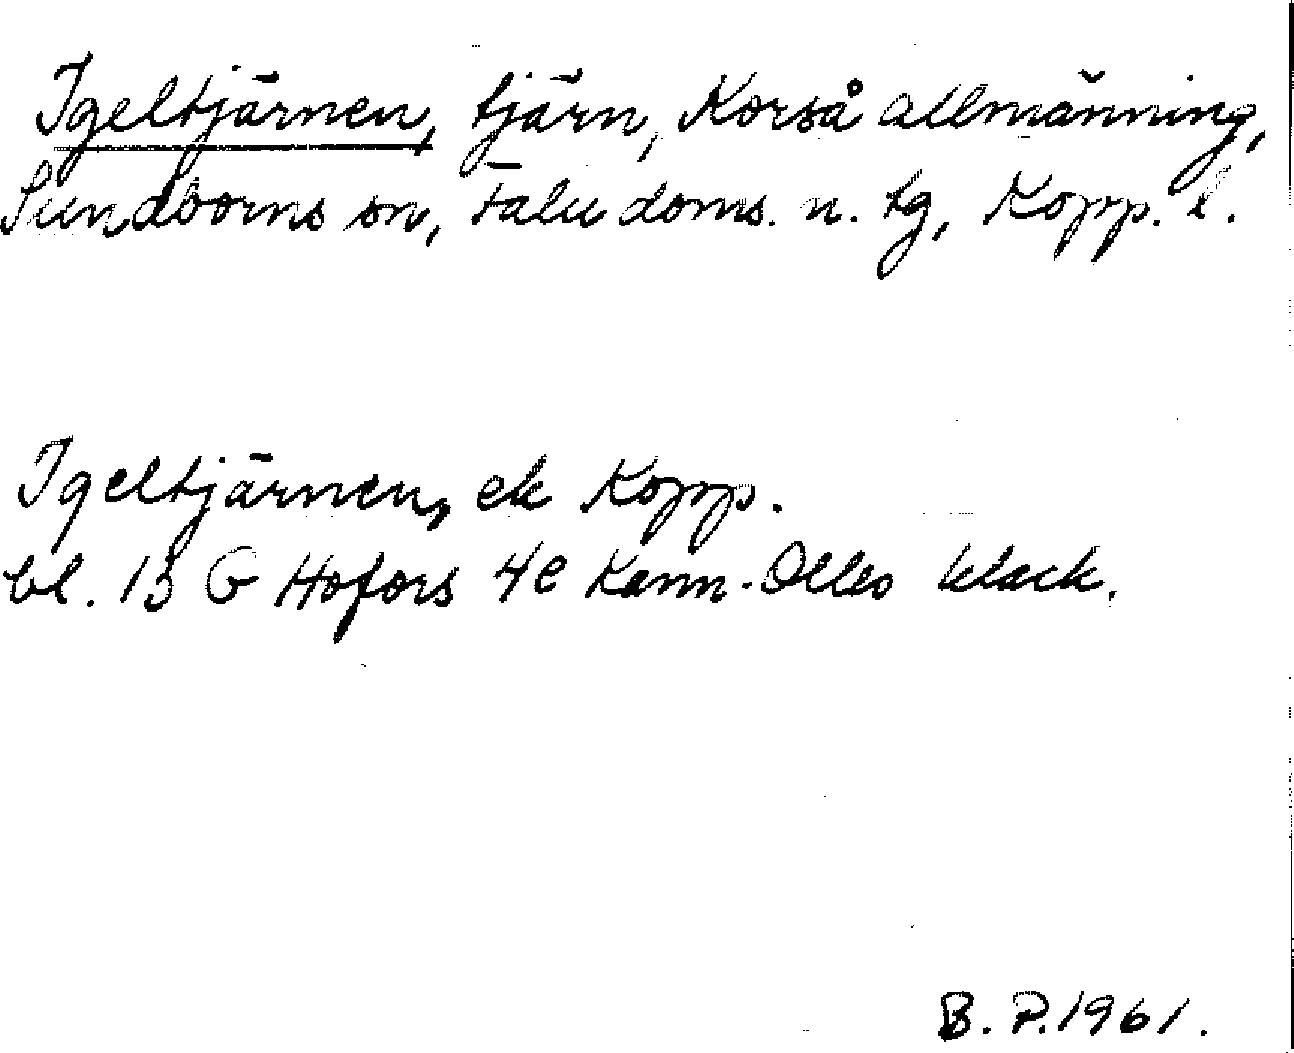 Igeltjärnen, tjärn, Korså allmänning,
Sundborns sn, Falu doms. n. tg, Kopp. l.
Igeltjärnen, ek Kopp.
bl. 13 G Hofors 4e Kann-Olles klack.
B. P. 1961.